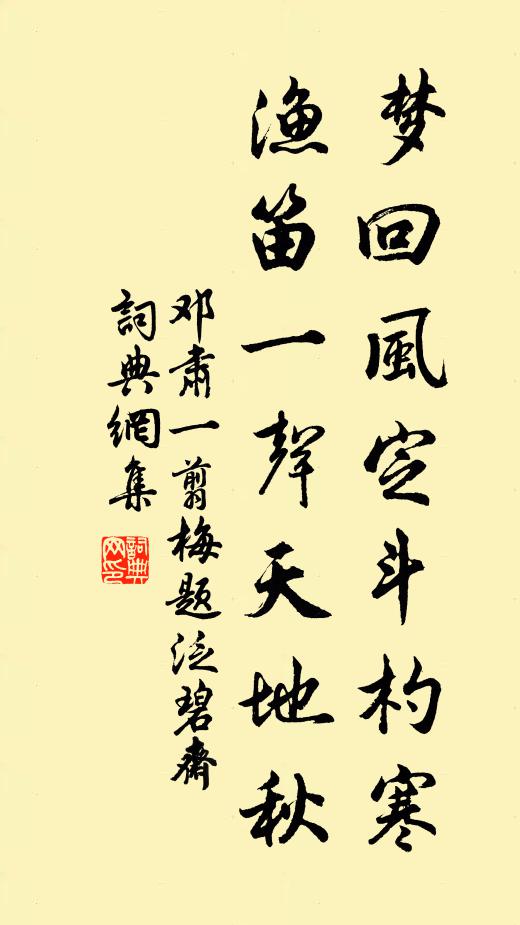 梦回風定斗杓寒
漁笛一聲天地秋
邓肃一剪梅题泛碧齋
詞典網集
詞典网印